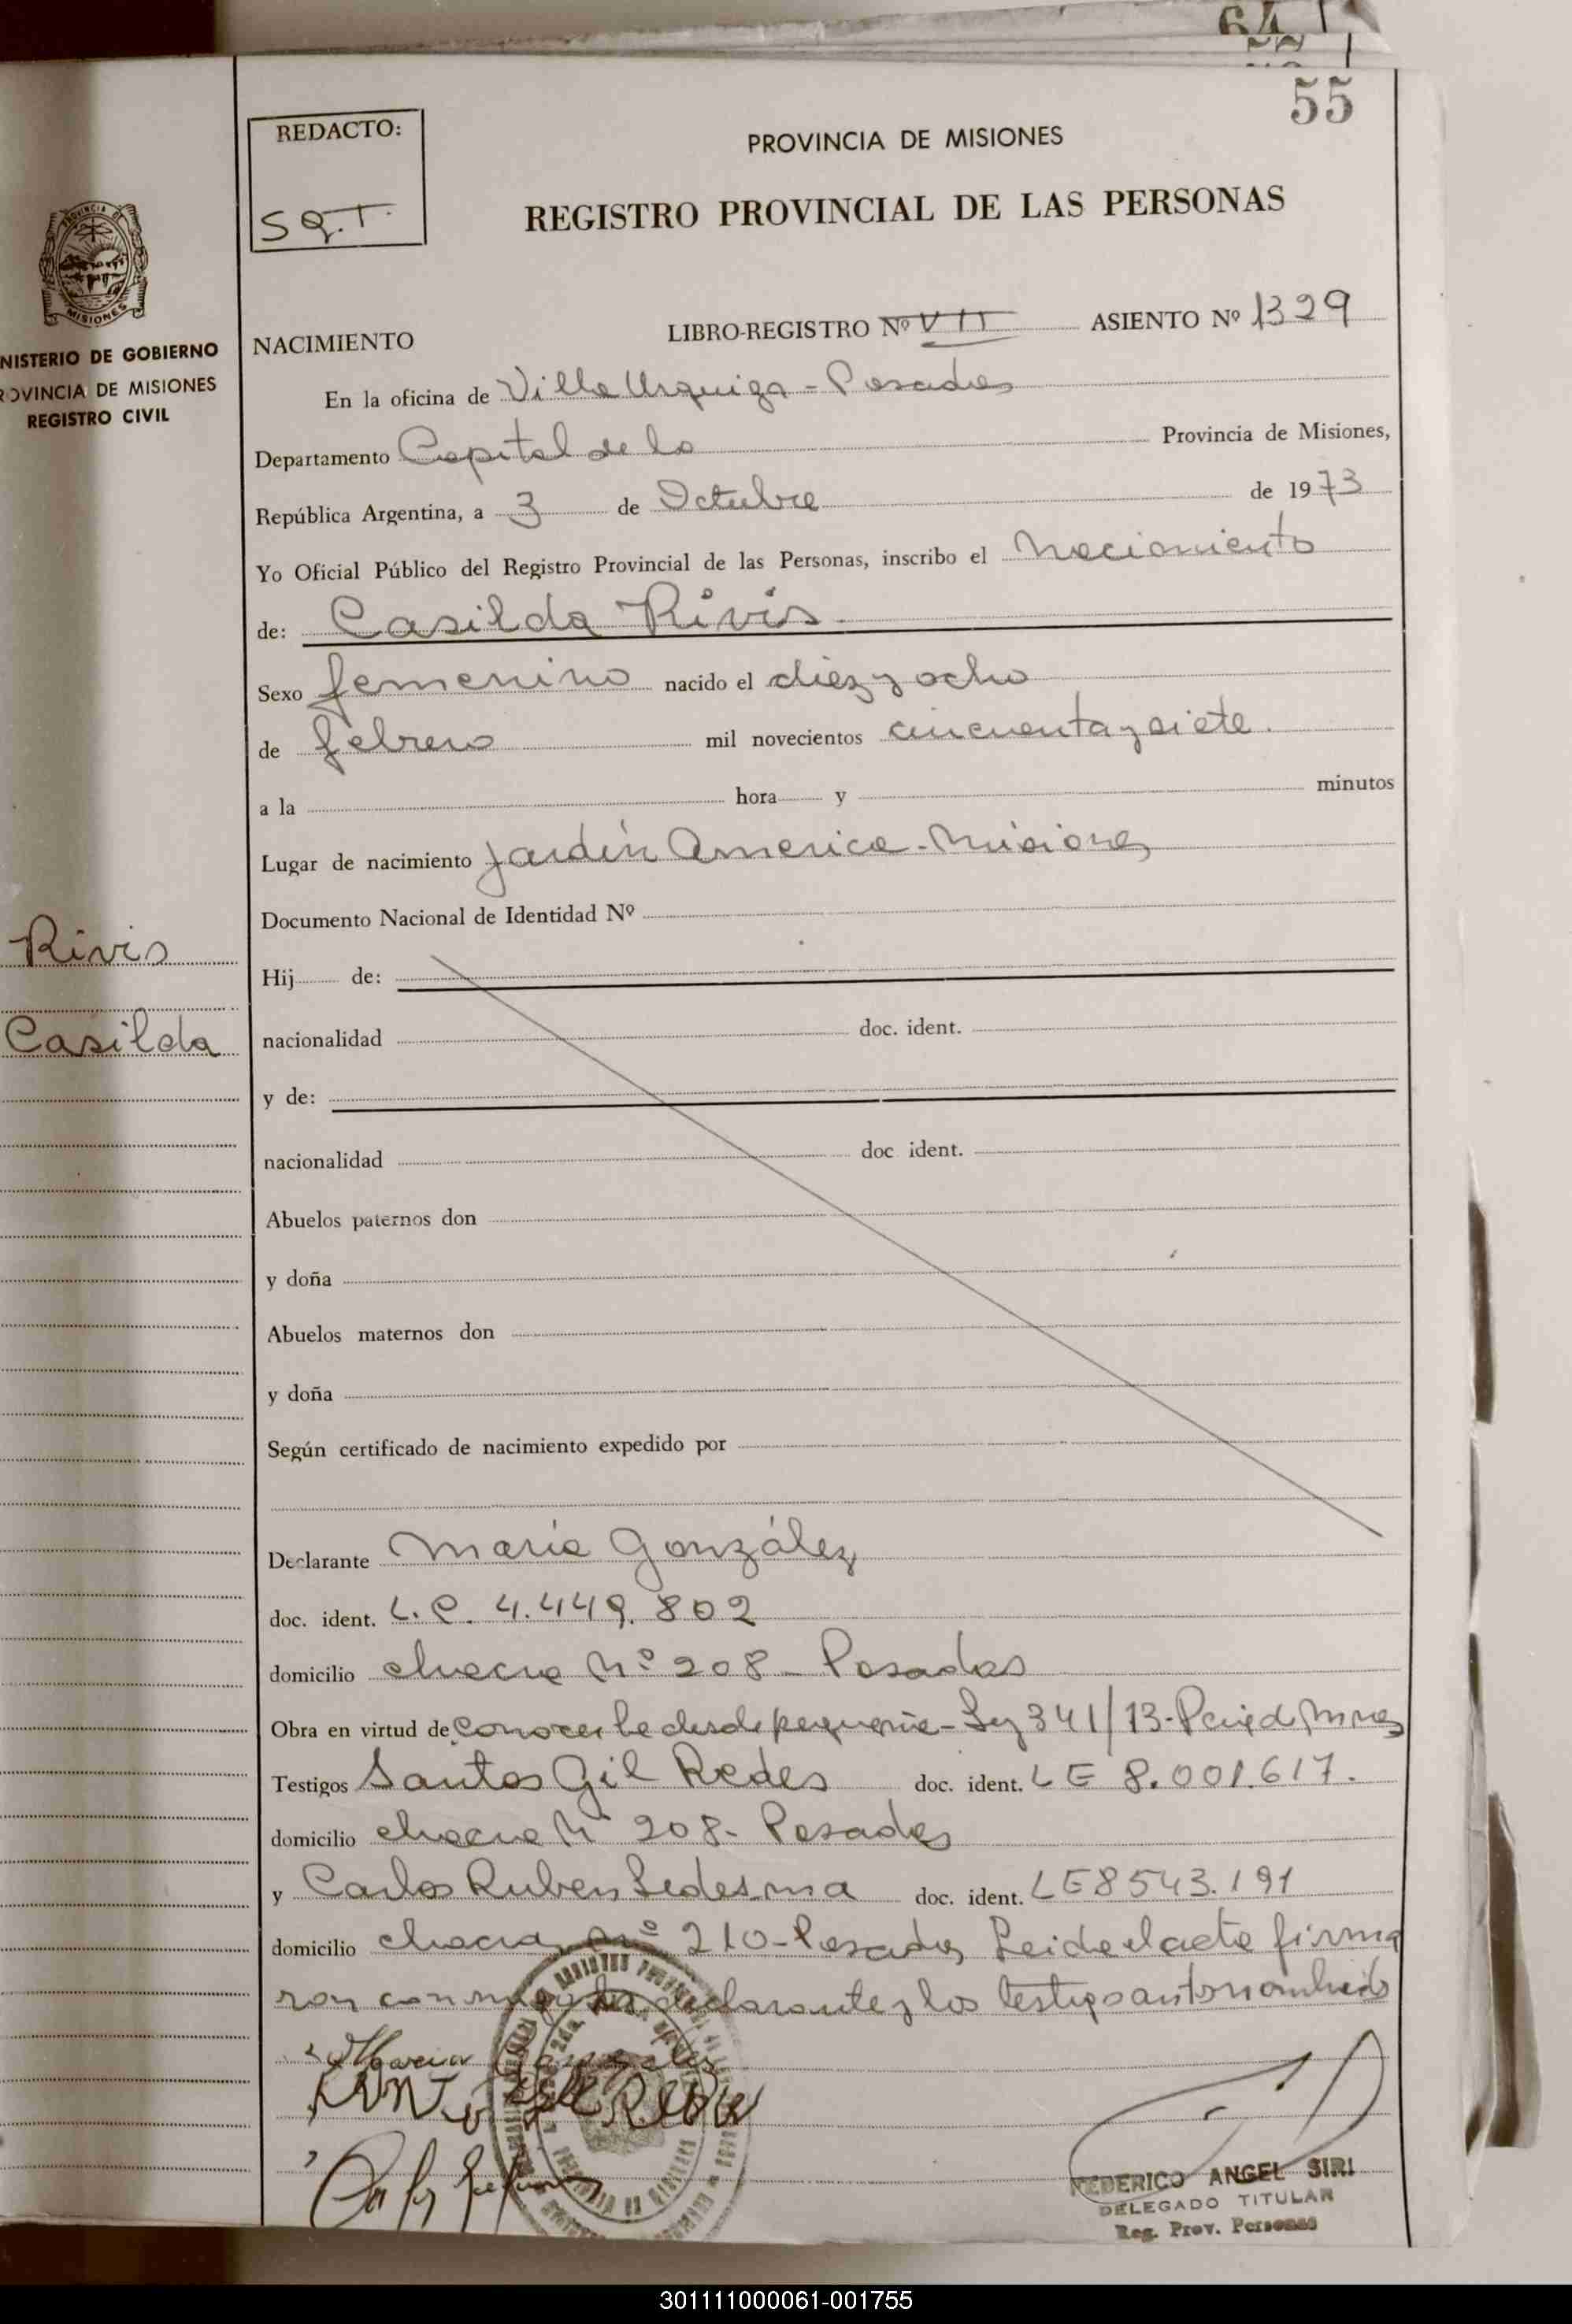 64
55
REDACTO:
S Q. T.
PROVINCIA DE MISIONES
REGISTRO PROVINCIAL DE LAS PERSONAS
PROVINCIA DE
MISIONES
NISTERIO DE GOBIERNO
ROVINCIA DE MISIONES
REGISTRO CIVIL
NACIMIENTO LIBRO-REGISTRO Nº VII ASIENTO Nº 1329
En la oficina de Villa Urquiza - Posadas
Departamento Capital de la Provincia de Misiones,
República Argentina, a 3 de Octubre de 1973
Yo Oficial Público del Registro Provincial de las Personas, inscribo el Nacimiento
de: Casilda Rivis.
Sexo femenino nacido el diez y ocho
de febrero mil novecientos cincuenta y siete.
a la hora y minutos
Lugar de nacimiento Jardín America - Misiones
Documento Nacional de Identidad Nº
Rivis
Casilda
Hij de:
nacionalidad doc. ident.
y de:
nacionalidad doc ident.
Abuelos paternos don
y doña
Abuelos maternos don
y doña
Según certificado de nacimiento expedido por
Declarante María González
doc. ident. L.C. 4.449.802
domicilio chacra Nº 208 - Posadas
Obra en virtud de conocerle desde pequeña - Ley 341/73 -
Testigos Santos Gil Redes doc. ident. LE 8.001.617.
domicilio chacra Nº 208 - Posadas
y Carlos Ruben Ledesma doc. ident. LE 8543.191
domicilio chacra nº 210 - Posadas, Leida el acta firma
ron conmigo la declarante y los testigos antonombrados
Maria Gonzales
FEDERICO ANGEL SIRI
DELEGADO TITULAR
Reg. Prov. Personas
301111000061-001755